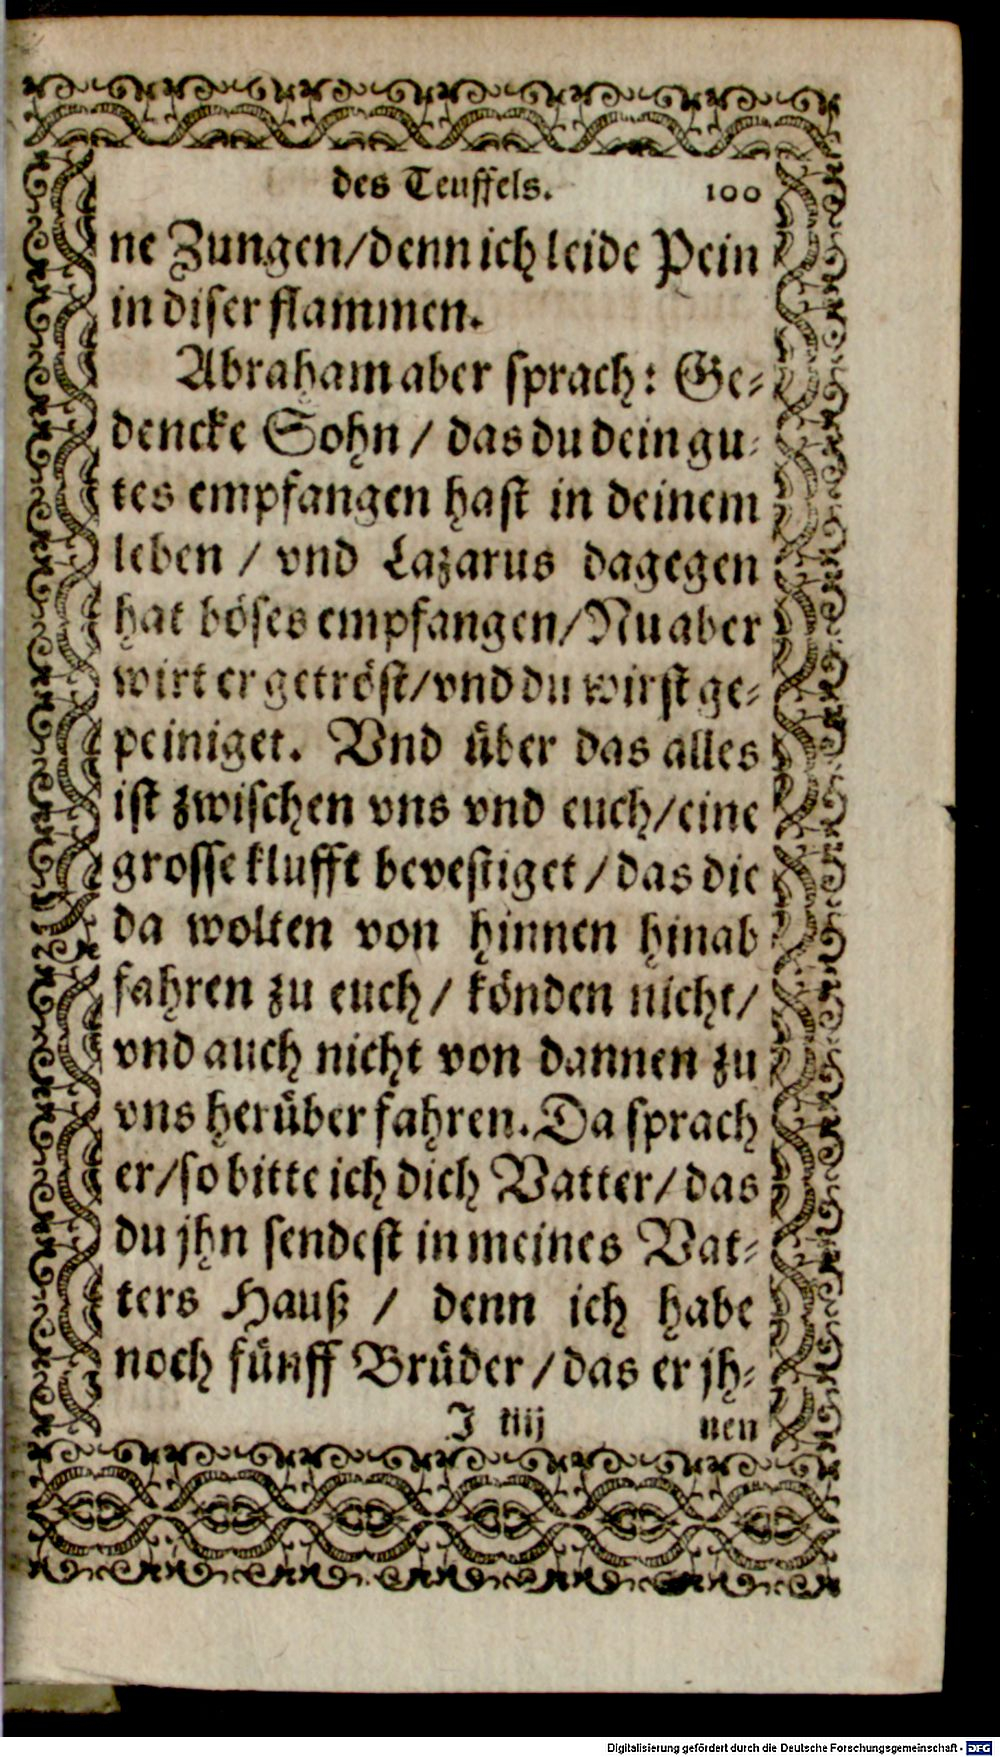 des Teuffels. 100
ne Zungen/denn ich leide Pein
in diser flammen.
Abraham aber sprach: Ge-
dencke Sohn / das du dein gu-
tes empfangen hast in deinem
leben / vnd Lazarus dagegen
hat böses empfangen/Nu aber
wirt er getröst/vnd du wirst ge-
peiniget. Vnd über das alles
ist zwischen vns vnd euch/eine
grosse klufft bevestiget / das die
da wolten von hinnen hinab
fahren zu euch / könden nicht/
vnd auch nicht von dannen zu
vns herüber fahren. Da sprach
er/so bitte ich dich Vatter/das
du jhn sendest in meines Vat-
ters Hauß / denn ich habe
noch fünff Brüder / das er jh-
J iiij nen
Digitalisierung gefördert durch die Deutsche Forschungsgemeinschaft - DFG